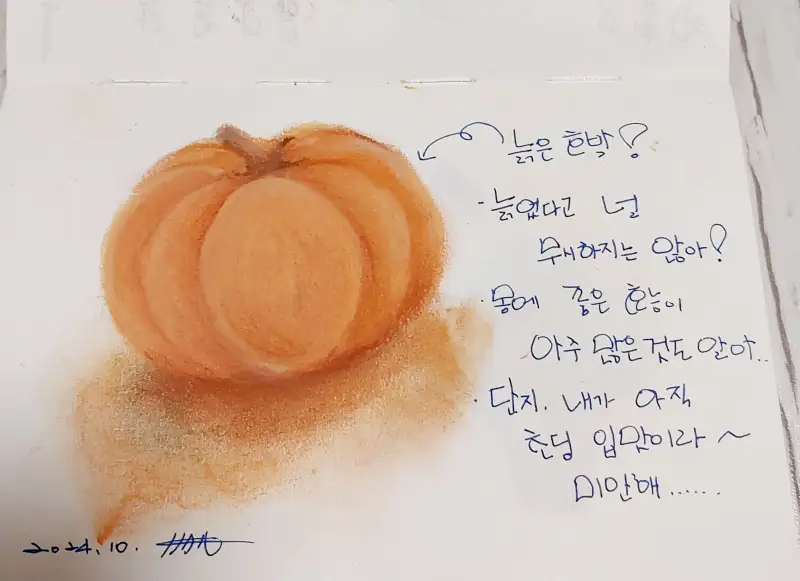 늙은 호박?
· 늙었다고 널
무시하지는 않아?
· 몸에 좋은 효능이
아주 많은 것도 알아..
· 단지. 내가 아직
초딩 입맛이라 ~
미안해......
2024. 10.